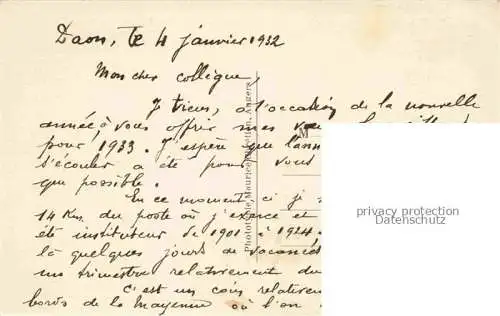 Daon, le 4 janvier 1932
Mon cher collègue,
Je tiens, à l'occasion de la nouvelle
année, à vous offrir mes
pour 1933. J'espère que l'ann
s'écouler a été pour vous
que possible.
En ce moment ci je s
14 Km du poste où j'exerce et
été instituteur de 1901 à 1924.
là quelques jours de vacances
un trimestre relativement du
C'est un coin relativem
bords de la Mayenne où l'on
Phototypie Maurice Angers
privacy protection
(datenschutz)